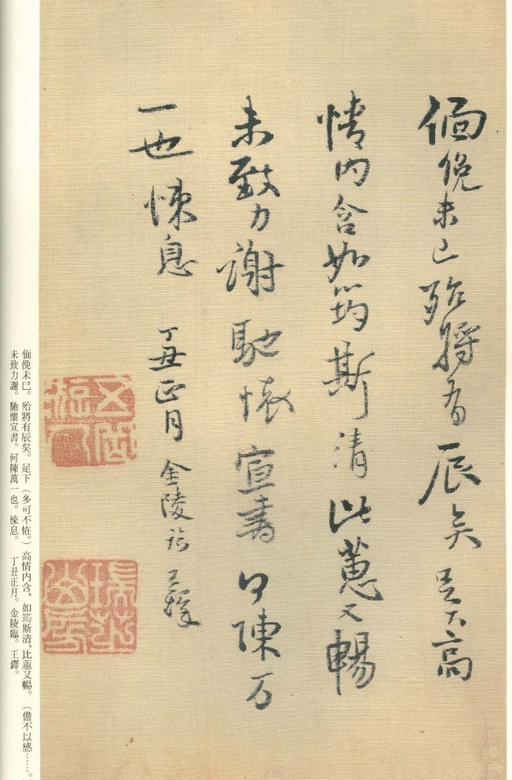 僶俛未已殆將有辰矣足下高
情内含如筠斯清比蕙又暢
未致力謝馳懷宣書何陳万
一也悚息　丁丑正月金陵臨王鐸
僶俛未已。殆將有辰矣。足下（多可不恠。）高情内含、如筠斯清、比蕙又暢。（儋不以感……。）
未致力謝。馳懷宣書。何陳萬一也。悚息。　丁丑正月。金陵臨。王鐸。